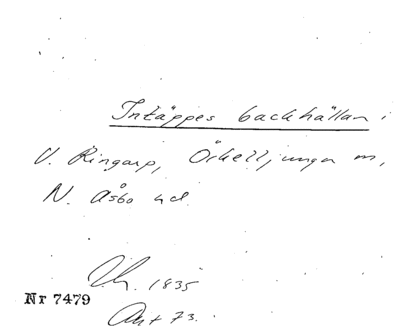 Intäppes backhällan i
V. Ringarp, Örkelljunga m,
N. Åsbo hd.
1835
Nr 7479
Akt 73.